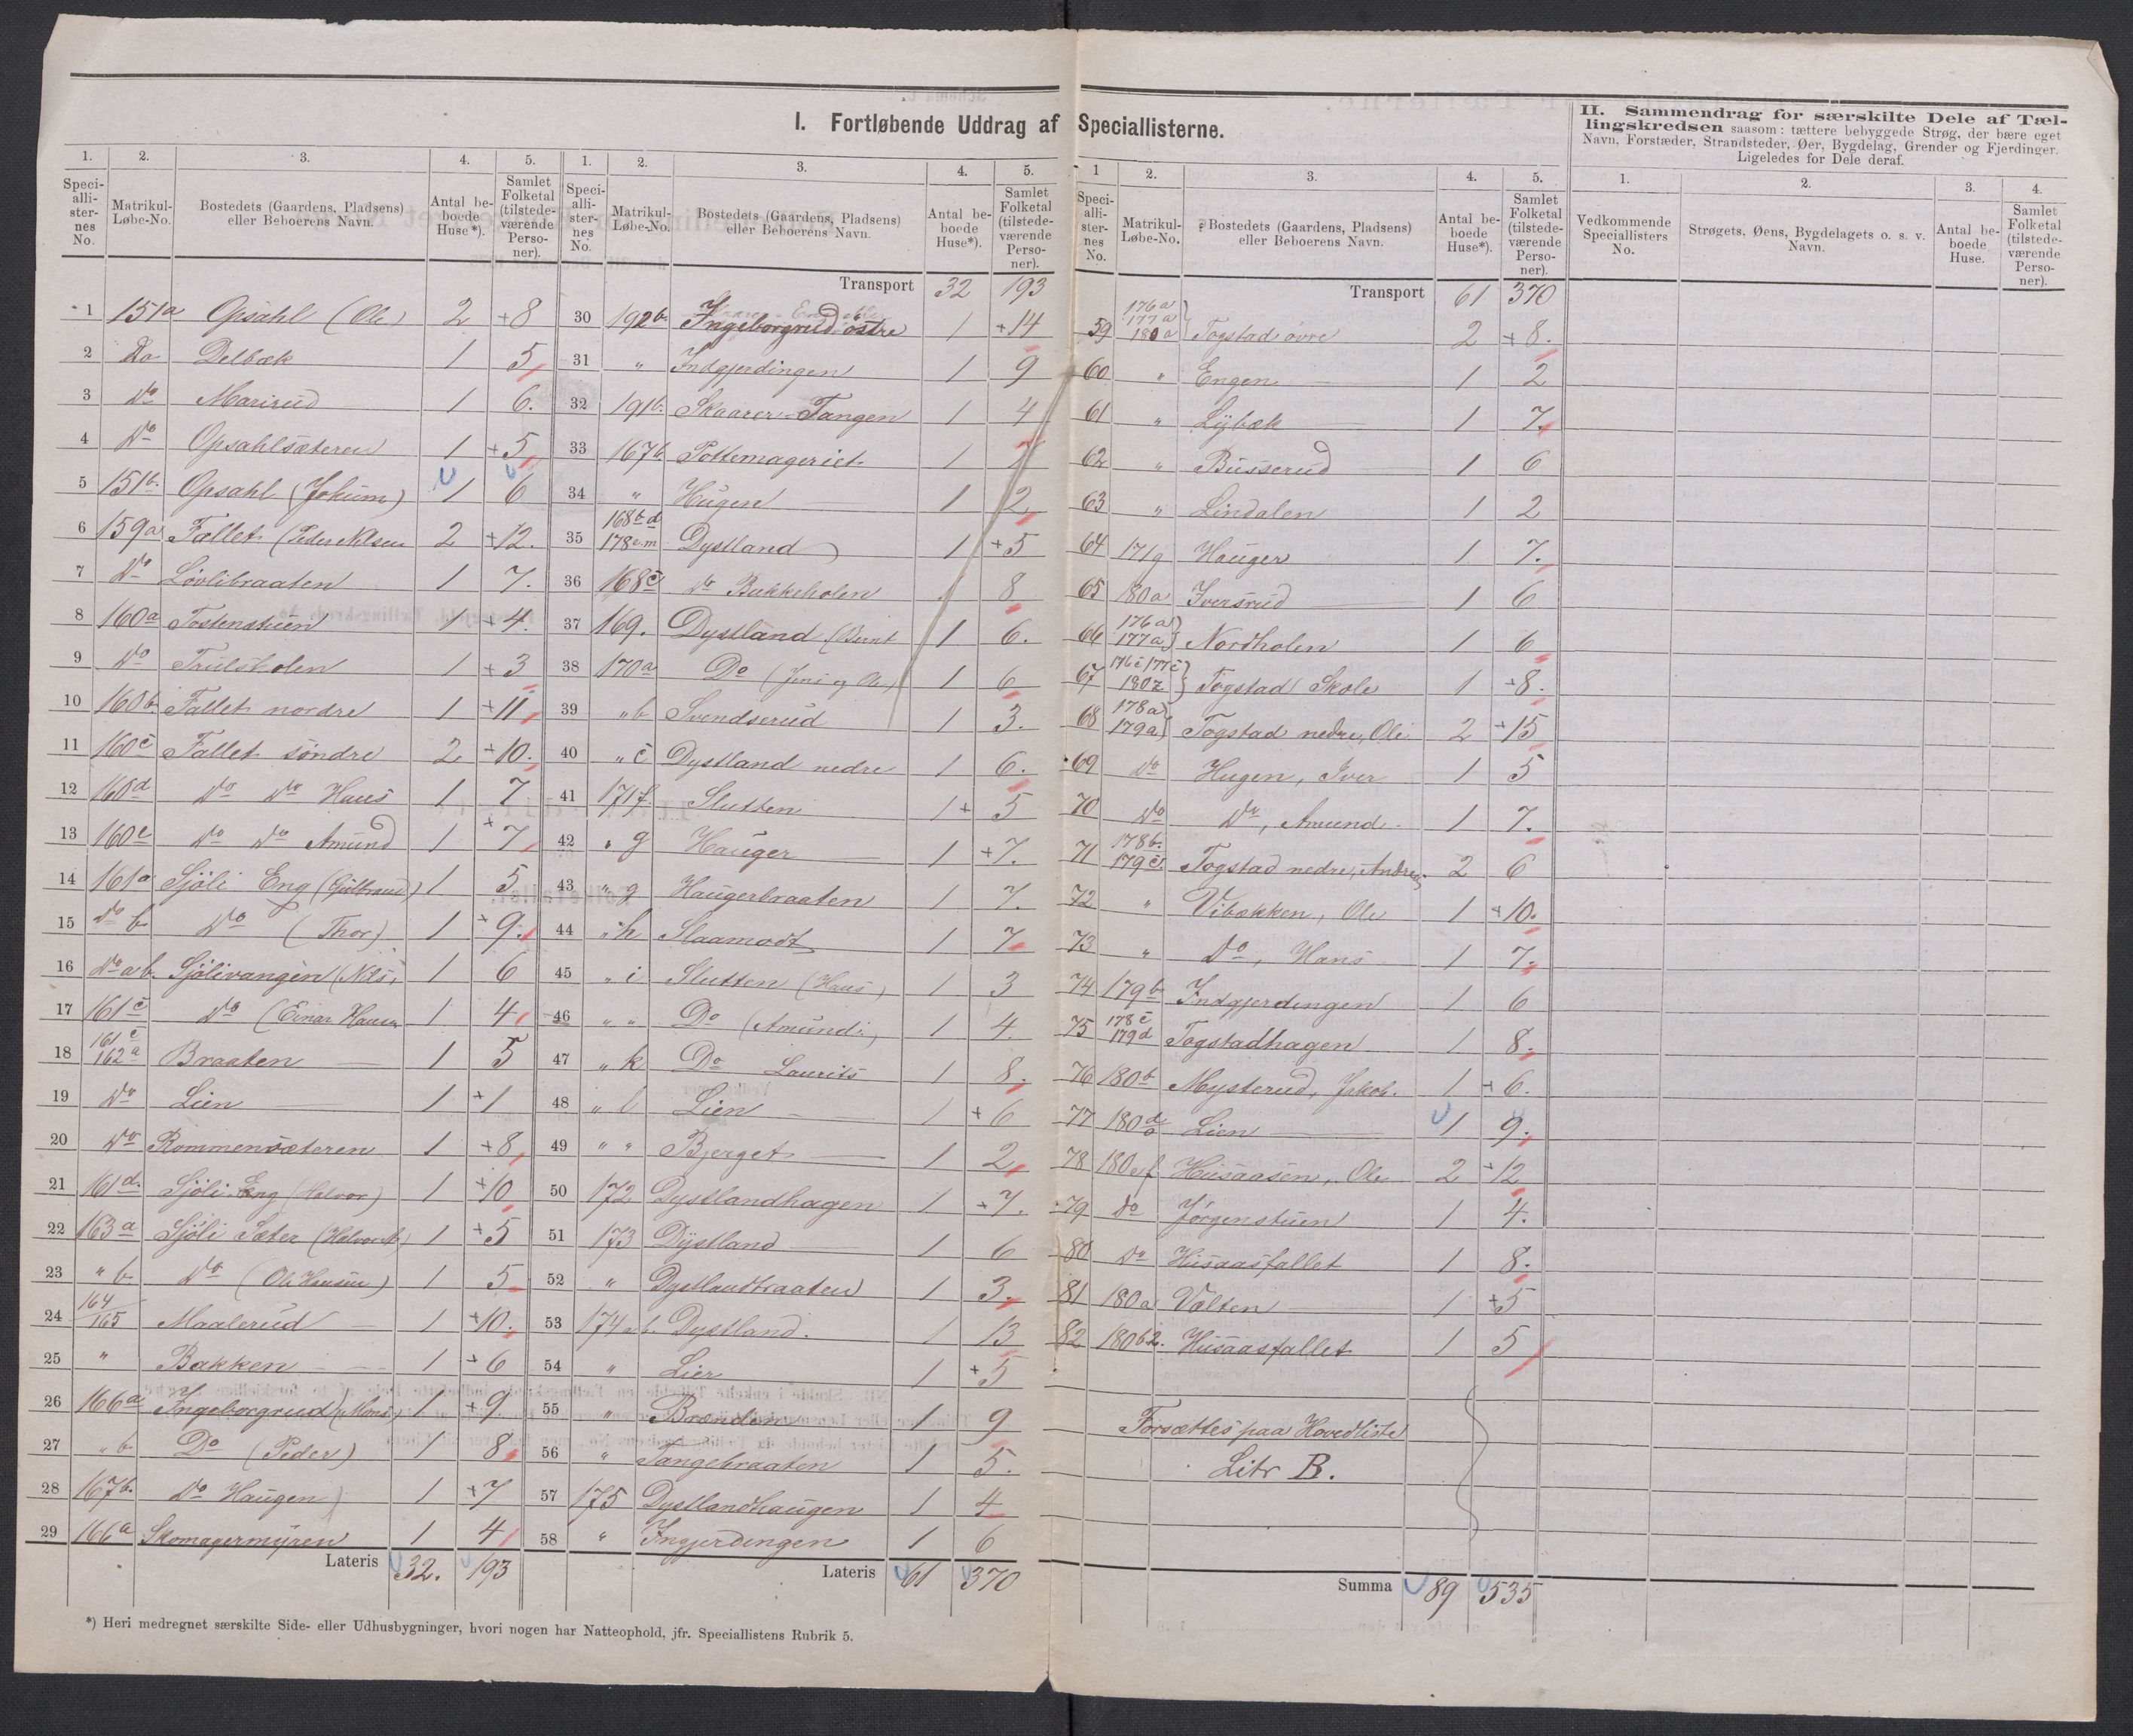 I. Fortløbende Uddrag af Speciallisterne.
1. 2. 3. 4. 5.
Speciallisternes No. Matrikul-Løbe-No. Bostedets (Gaardens, Pladsens) eller Beboerens Navn. Antal beboede Huse*). Samlet Folketal (tilstedeværende Personer).
1 151a Opsahl (Ole) 2 +8
2 Do Delbæk 1 5
3 Do Marirud 1 6.
4 Do Opsahlsæteren 1 +5
5 151b. Opsahl (Jokum) 1 6
6 159a Fallet (Peder Nilsen 2 +12.
7 Do Lövlibraaten 1 7.
8 160a Tostenstuen 1 +4.
9 Do Trulsholen 1 +3
10 160b. Fallet nordre 1 +11
11 160c Fallet söndre 2 +10.
12 160d Do Do Hans 1 7
13 160e Do Do Amund 1 +7
14 161a Sjöli Eng (Gulbrand) 1 5
15 Do b Do (Thor) 1 +9.
16 Do a b. Sjölivangen (Nils) 1 6
17 161c Do (Einar Hansen 1 4
18 161c 162a Braaten 1 5
19 Do Lien 1 +1
20 Do Rommensæteren 1 +8
21 161d. Sjöli Eng (Halvor) 1 +10
22 163a Sjöli Sæter (Halvor 1 +5
23 " b Do (Ole Hansen) 1 5
24 164/165 Maalerud 1 +10.
25 " Bakken 1 +6
26 166a Ingeborgrud (Mons) 1 +9
27 " b Do (Peder) 1 8
28 167b. Do Haugen 1 +7
29 166a Skomagermyren 1 4
Lateris 32. 193
1. 2. 3. 4. 5.
Speciallisternes No. Matrikul-Løbe-No. Bostedets (Gaardens, Pladsens) eller Beboerens Navn. Antal beboede Huse*). Samlet Folketal (tilstedeværende Personer).
Transport 32 193
30 192b. Ingeborgrud östre 1 +14
31 " Indgjerdingen 1 9
32 191b. Skaarer-Tangen 1 4
33 167b. Pottemageriet 1
34 " Hugen 1 2
35 168b d 178 Dystland 1 +5
36 168c do Bakkeholen 1 8
37 169. Dystland (Bernt 1 6.
38 170a Do 1 6
39 " b Svendserud 1 3.
40 " c Dystland nedre 1 6.
41 171f. Slutten 1 + 5
42 " g Hauger 1 +7.
43 " g Haugerbraaten 1 7.
44 " h Slaamodt 1 7
45 " i Slutten (Hans) 1 3
46 " " Do (Amund) 1 4.
47 " k Do Laurits 1 8.
48 " l Lien 1 +6
49 " " Bjerget 1 2
50 172 Dystlandhagen 1 +7.
51 173 Dystland 1 6
52 " Dystlandbraaten 1 3.
53 174 a b. Dystland. 1 13
54 " Lier 1 +5
55 " Brænden 1 9
56 " Tangebraaten 1 5.
57 175 Dystlandhaugen 1 4
58 " Ingjerdingen 1 6
Lateris 61 370
1 2. 3. 4. 5.
Speciallisternes No. Matrikul-Løbe-No. Bostedets (Gaardens, Pladsens) eller Beboerens Navn. Antal beboede Huse*). Samlet Folketal (tilstedeværende Personer).
Transport 61 370
59 176a 177a 180a } Togstad øvre 2 +8.
60 " Engen 1 2
61 " Lybæk 1 7.
62 " Busserud 1 6
63 " Lindalen 1 2
64 171g Hauger 1 7.
65 180a Iversrud 1 6
66 176a 177a } Nordholen 1 6
67 176c 177c 180z } Togstad Skole 1 +8.
68 178a 179a } Togstad nedre, Ole 2 +15
69 Do Hugen, Iver 1 5
70 Do Do, Amund 1 7.
71 178b. 179c. Togstad nedre, Andreas 2 6
72 " Vibækken, Ole 1 +10.
73 " Do, Hans 1 7.
74 179b Indgjerdingen 1 6
75 178c 179d Togstadhagen 1 8.
76 180b Mysterud, Jakob. 1 +6.
77 180d Lien 1 9.
78 180e f. Husaasen, Ole 2 +12
79 Do Jörgenstuen 1 4.
80 Do Husaasfallet 1 8.
81 180a Volten 1 +5
82 180b2. Husaasfallet 1 5
Forsættes paa Hovedliste
Litr B.
Summa 89 535
II. Sammendrag for særskilte Dele af Tællingskredsen saasom: tættere bebyggede Strøg, der bære eget Navn, Forstæder, Strandsteder, Øer, Bygdelag, Grender og Fjerdinger. Ligeledes for Dele deraf.
1. 2. 3. 4.
Vedkommende Speciallisters No. Strøgets, Øens, Bygdelagets o. s. v. Navn. Antal beboede Huse. Samlet Folketal (tilstedeværende Personer).
*) Heri medregnet særskilte Side- eller Udhusbygninger, hvori nogen har Natteophold, jfr. Speciallistens Rubrik 5.